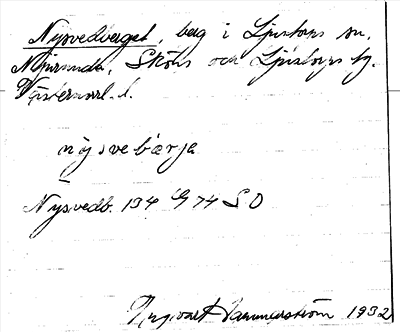 Nysvedberget, berg i Ljustorps sn.
Njurunda, Sköns och Ljustorps tg.
Västernorrl. l.
nỳsvebærja
Nysvedb. 134 G 74 SO
Ingvart Dammerström 1932